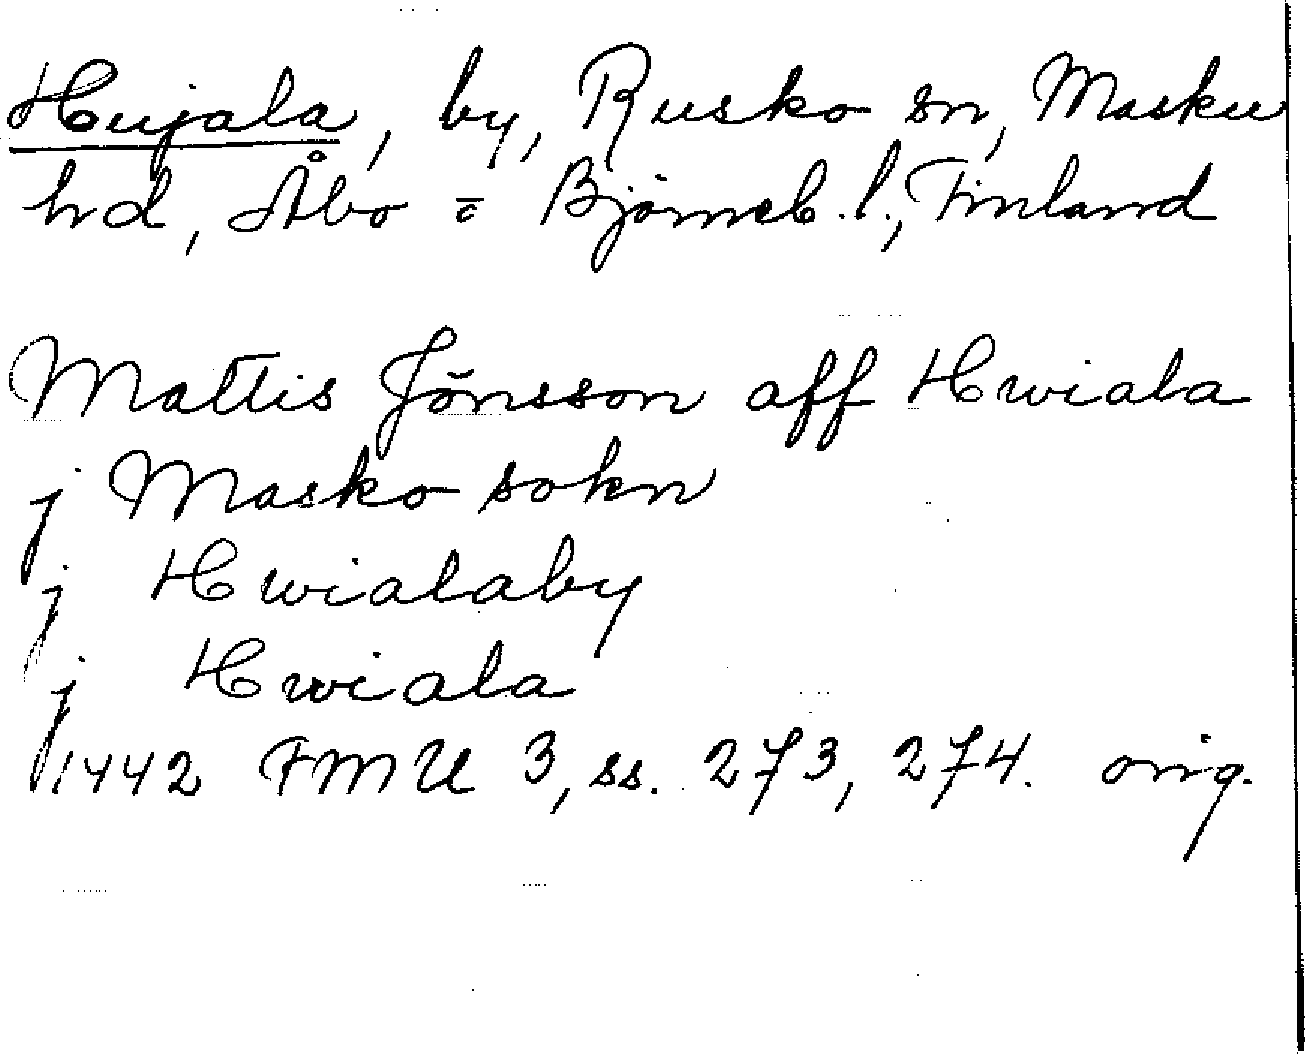 Hujala, by, Rusko sn, Masku
hd, Åbo = Björneb. l., Finland
Mattis Jönsson aff Hwiala
j Masko sokn
j Hwialaby
j Hwiala
1442 FMU 3, ss. 273, 274. orig.